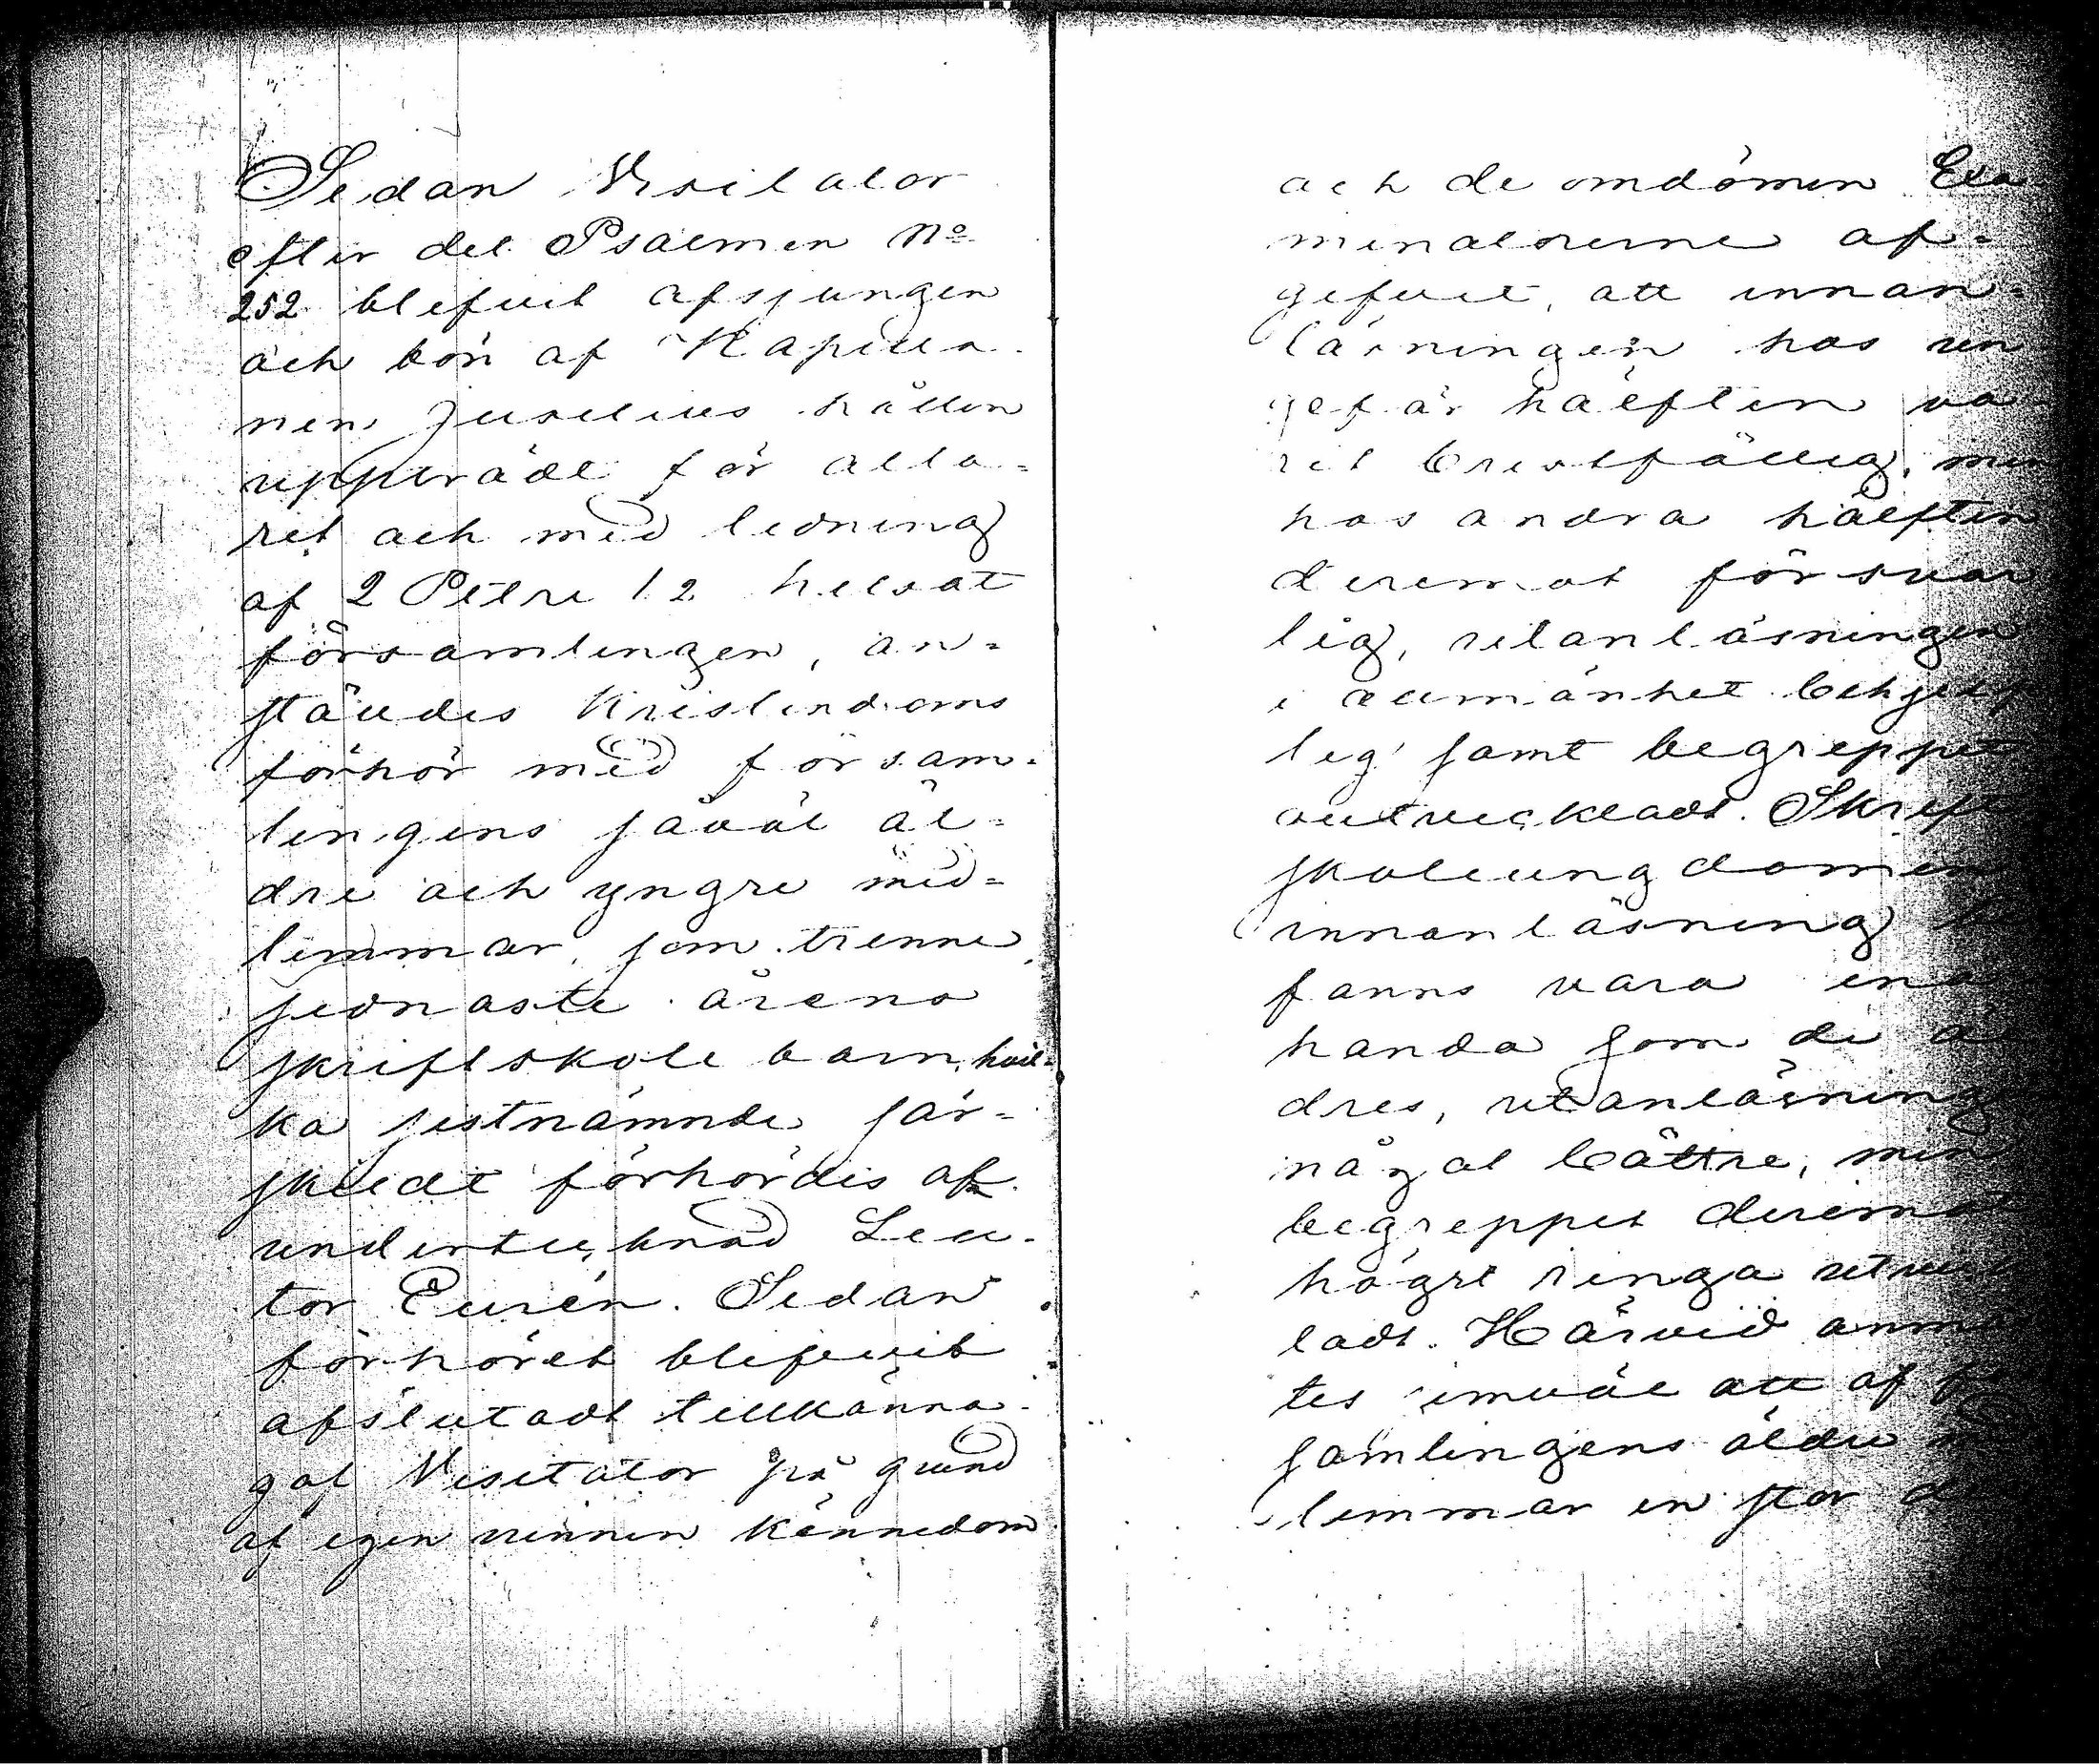 Sedan Visitator
efter det Psalmen No
252 blefvit afsjungen
och bön af Kapella-
nen Juselius hållen
uppträdt för alta=
ret och med ledning
af 2 Petri 1 2 helsat
församlingen, an=
stäldes Kristendoms
förhör med försam=
lingens såväl äl=
dre och yngre med=
lemmar, som trenne
sednaste årens
skriftskole barn, hvil=
ka sistnämnde sär=
skildt förhördes af
undertecknad Lek-
tor Eurén. Sedan
förhöret blifvit
afslutadt tillkänna-
gaf Visitator på grund
af egen vunnen kännedom
och de omdömen Exa
minatorerne af=
gifvit, att innan=
läsningen hos un
gefär hälften va
rit bristfällig, men
hos andra hälften
deremot försvar
lig, utanläsningen
i allmänhet behjelp
lig samt begreppet
outveckladt. Skrift
skoleungdomen
innanläsning
fanns vara ena
handa som de äl
dres, utanläsning
något bättre, men
begreppet deremot
högst ringa utveck
ladt. Härvid anm
tes jemväl att af f
samlingens äldre m
lemmar en stor de